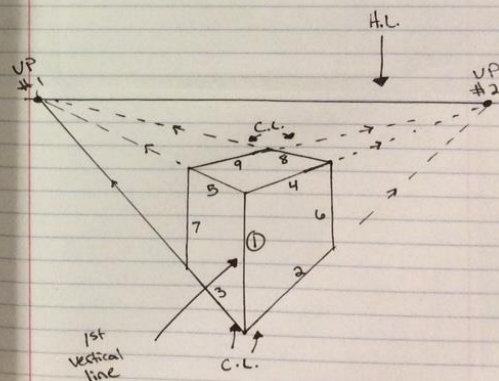 H.L.
VP
#1
VP
#2
C.L.
9
8
5
4
7
1
6
3
2
1st
vertical
line
C.L.